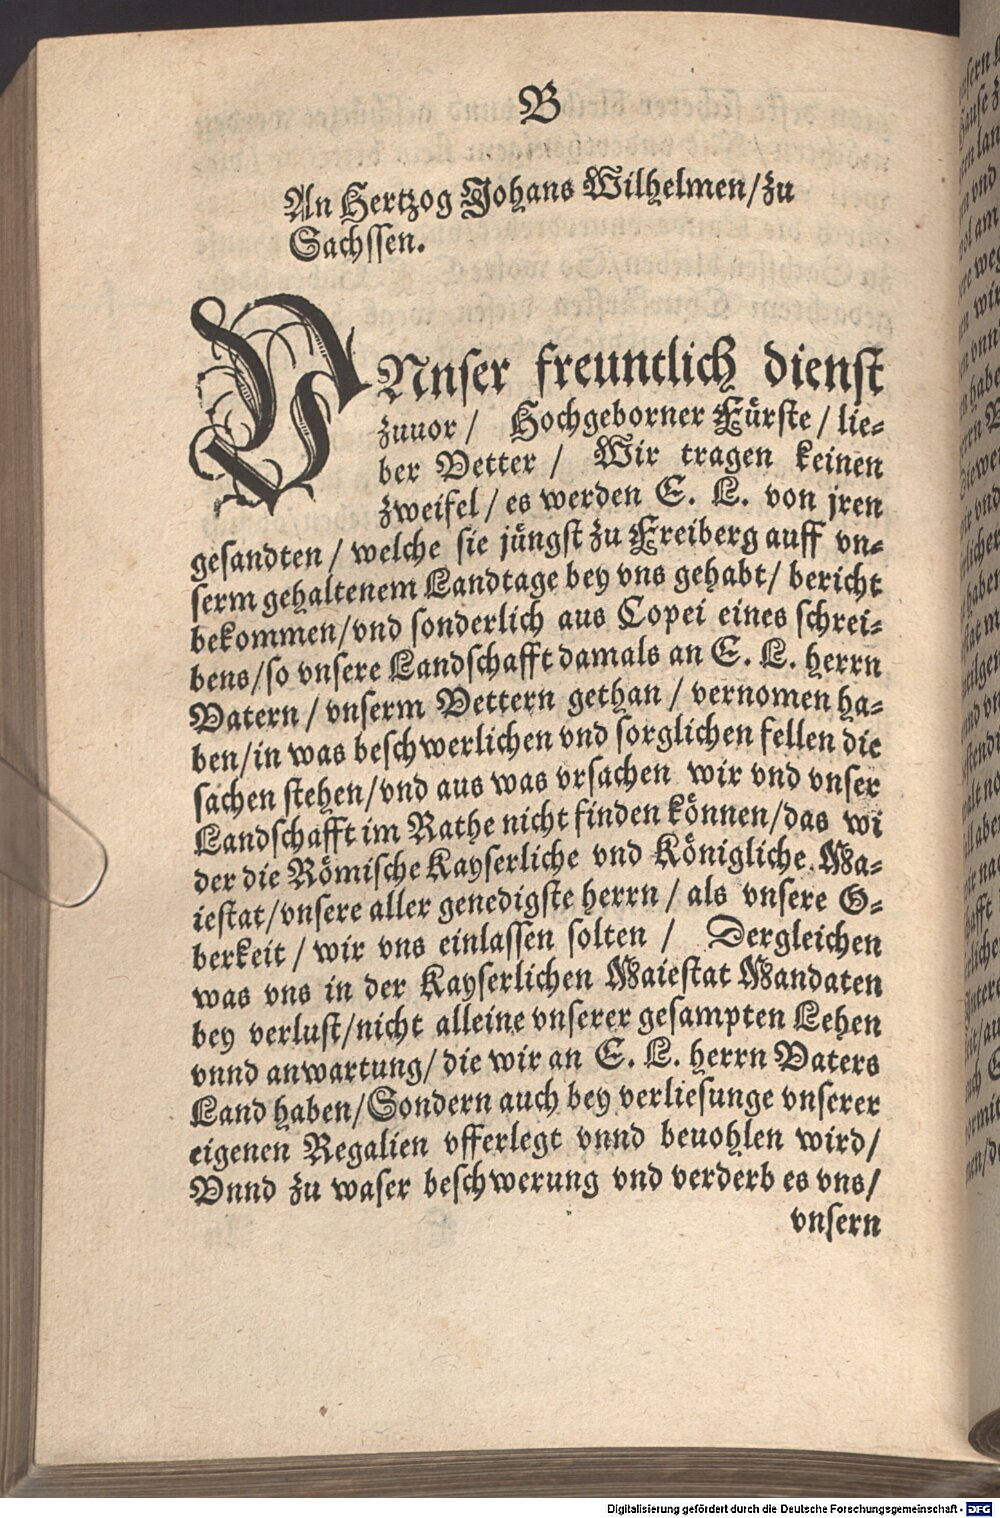 B
An Hertzog Johans Wilhelmen/zu
Sachssen.
VNnser freuntlich dienst
zuuor / Hochgeborner Fürste / lie-
ber Vetter / Wir tragen keinen
zweifel / es werden E. L. von jren
gesandten / welche sie jüngst zu Freiberg auff vn-
serm gehaltenem Landtage bey vns gehabt / bericht
bekommen/vnd sonderlich aus Copei eines schrei-
bens/so vnsere Landschafft damals an E. L. herrn
Vatern / vnserm Vettern gethan / vernomen ha-
ben/in was beschwerlichen vnd sorglichen fellen die
sachen stehen/vnd aus was vrsachen wir vnd vnser
Landschafft im Rathe nicht finden können/das wi
der die Römische Kayserliche vnd Königliche. Ma-
iestat/vnsere aller genedigste herrn / als vnsere O-
berkeit / wir vns einlassen solten / Dergleichen
was vns in der Kayserlichen Maiestat Mandaten
bey verlust/nicht alleine vnserer gesampten Lehen
vnnd anwartung/ die wir an E. L. herrn Vaters
Land haben/Sondern auch bey verliesunge vnserer
eigenen Regalien vfferlegt vnnd beuohlen wird/
Vnnd zu waser beschwerung vnd verderb es vns/
vnsern
Digitalisierung gefördert durch die Deutsche Forschungsgemeinschaft - DFG